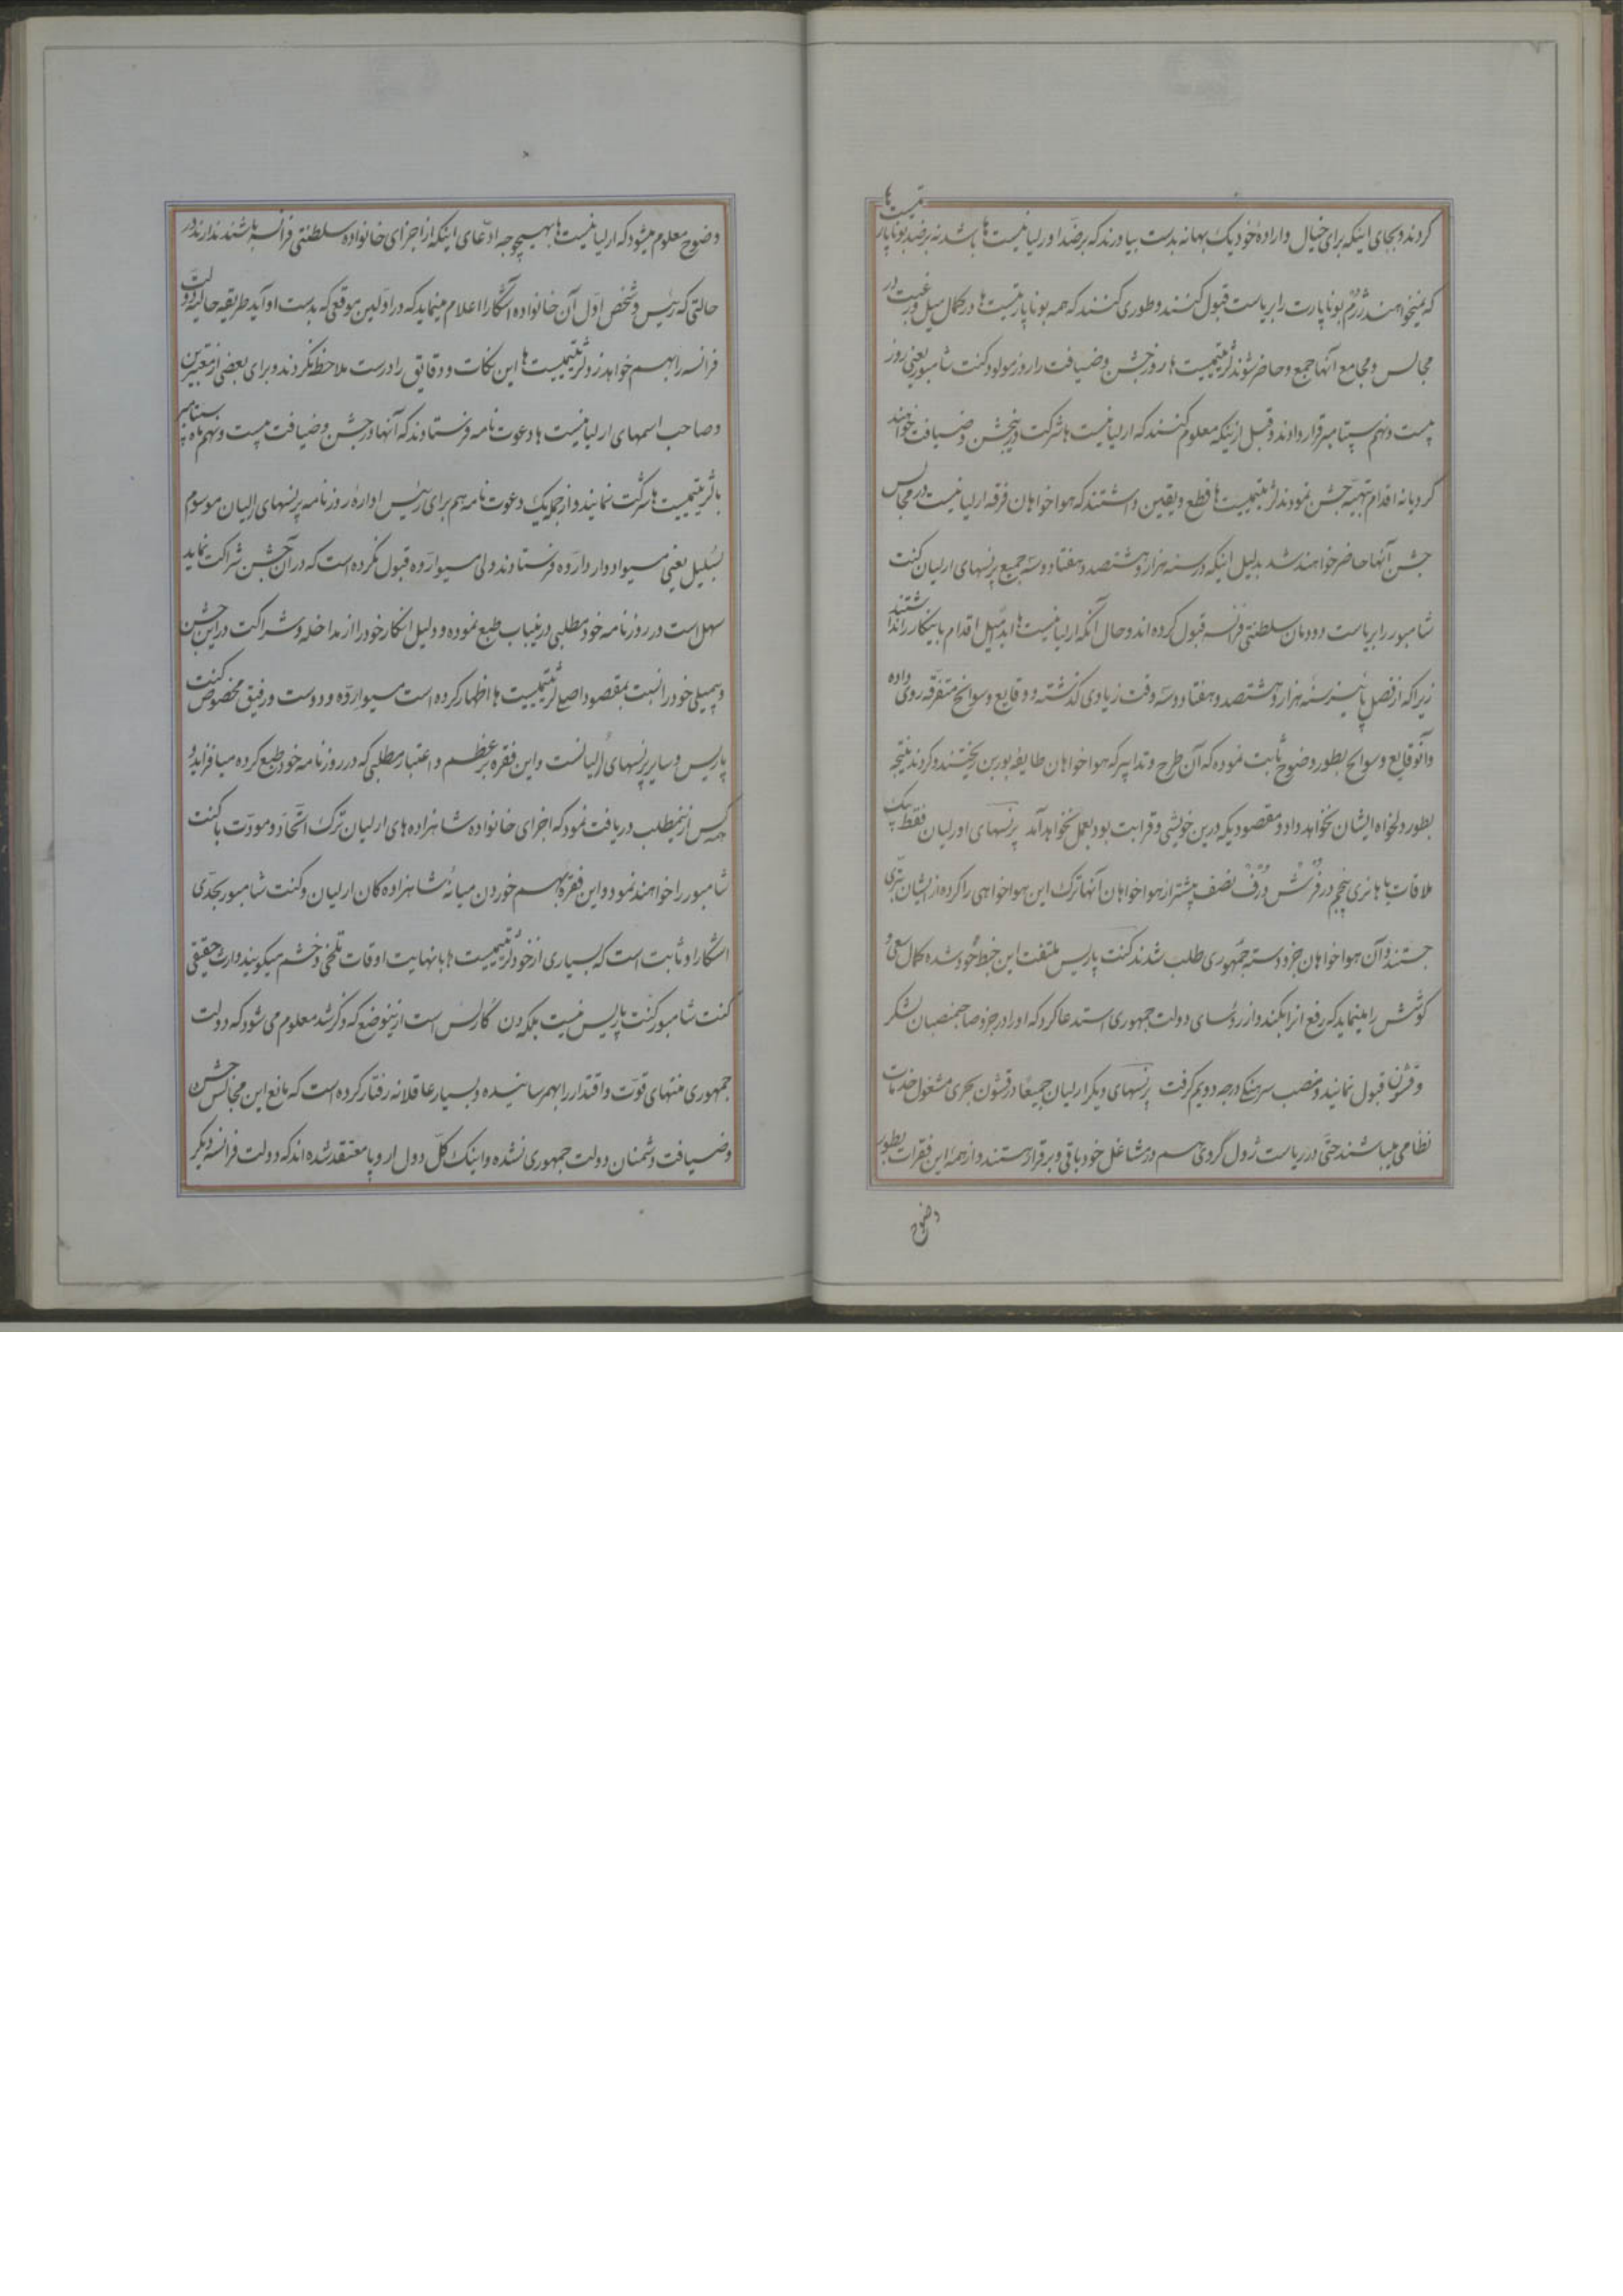 کردند و بجای اینکه برای خیال و اراده خود یک بهانه بدست بیاورند که بر ضد اورلیانیست ها باشد نه بر ضد بوناپارتیست ها
که نمیخواهند ژرم بوناپارت را بریاست قبول کنند و طوری کنند که همه بوناپارتیست ها در کمال میل و رغبت در
مجالس و مجامع آنها جمع و حاضر شوند لژیتیمیست ها روز جشن و ضیافت را روز مولود کنت شامبور یعنی روز
بیست و نهم سپتامبر قرار دادند و قبل از اینکه معلوم کنند که ارلیانیست ها شرکت در اینجشن و ضیافت خواهند
کرد یا نه اقدام بتهیه جشن نمودند لژیتیمیست ها قطع و یقین داشتند که هواخواهان فرقه ارلیانیست در مجالس
جشن آنها حاضر خواهند شد بدلیل اینکه در سنه هزار و هشتصد و هفتاد و سه جمیع پرنسهای ارلیان کنت
شامبور را بریاست دودمان سلطنتی فرانسه قبول کرده اند و حال آنکه ارلیانیست ها ابداً میل اقدام باینکار را نداشتند
زیرا که از فصل پائیز سنه هزار و هشتصد و هفتاد و سه وقت زیادی گذشته و وقایع و سوانح متفرقه روی داده
و آنوقایع و سوانح بطور وضوح ثابت نموده که آن طرح و تدابیر که هواخواهان طایفه بوربن ریختند و کردند نتیجه
بطور دلخواه ایشان نخواهد داد و مقصودیکه در بین خویشی و قرابت بود بعمل نخواهد آمد پرنسهای اورلیان فقط یک
ملاقات با هانری پنجم در فرش درف نصف بیشتر از هواخواهان آنها ترک این هواخواهی را کرده از ایشان تبری
جستند و آن هواخواهان جزو دسته جمهوری طلب شدند کنت پاریس ملتفت این خبط خود شده کمال سعی و
کوشش را مینماید که رفع انرا بکند و از رؤسای دولت جمهوری استدعا کرد که او را در جزو صاحبمنصبان لشکر
و قشون قبول نمایند و منصب سرهنگی درجه دویم گرفت پرنسهای دیگر ارلیان جمیعاً در قشون بحری مشغول خدمات
نظامی میباشند حتی در ریاست ژول گروی هم در مشاغل خود باقی و برقرار هستند و از همه این فقرات بطور
وضوح
وضوح معلوم میشود که ارلیانیست ها بهیچوجه ادعای اینکه از اجزای خانواده سلطنتی فرانسه باشند ندارند در
حالتی که رئیس و شخص اول آن خانواده آشکارا اعلام مینماید که در اولین موقعی که بدست او آید طریقه حالیه دولت
فرانسه را بهم خواهد زد لژیتیمیست ها این نکات و دقایق را درست ملاحظه نکردند و برای بعضی از معتبرین
و صاحب اسمهای ارلیانیست ها دعوت نامه فرستادند که آنها در جشن و ضیافت بیست و نهم ماه سپتامبر
با لژیتیمیست ها شرکت نمایند و از جمله یک دعوت نامه هم برای رئیس اداره روزنامه پرنسهای ارلیان موسوم
بسلیل یعنی مسیو ادوار دارَوه فرستادند ولی مسیو ارَوه قبول نکرده است که در آن جشن شراکت نماید
سهل است در روزنامه خود مطلبی در اینباب طبع نموده و دلیل انکار خود را از مداخله و شراکت در این جشن
و بیمیلی خود را نسبت بمقصود اصلی لژیتیمیست ها اظهار کرده است مسیو ارَوه دوست و رفیق مخصوص کنت
پاریس و سایر پرنسهای اُرلیانست و این فقره بر عظم و اعتبار مطلبی که در روزنامه خود طبع کرده میافزاید و
همه کس از اینمطلب دریافت نمود که اجزای خانواده شاهزاده های ارلیان ترک اتحاد و مودت با کنت
شامبور را خواهند نمود و این فقره بهم خوردن میانه شاهزاده کان ارلیان و کنت شامبور بحدی
اشکار و ثابت است که بسیاری از خود لژیتیمیست ها با نهایت اوقات تلخی و خشم میکویند وارث حقیقی
کنت شامبور کنت پاریس نیست بلکه دن کارلس است از اینوضع که ذکر شد معلوم می شود که دولت
جمهوری منتهای قوت و اقتدار را بهم رسانیده و بسیار عاقلانه رفتار کرده است که مانع این مجالس جشن
و ضیافت دشمنان دولت جمهوری نشده و اینک کل دول اروپا معتقد شده اند که دولت فرانسه دیگر